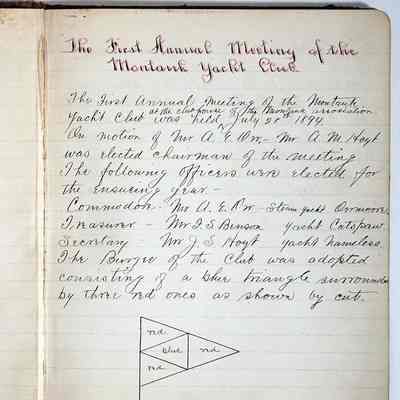 The First Annual Meeting of the
Montauk Yacht Club.
The First Annual Meeting of the Montauk
at the club house of the Montauk association
Yacht Club was held July 28th 1894
On motion of Mr A. E. Orr - Mr A. M. Hoyt
was elected chairman of the meeting
The following officers were elected for
the ensuing year. -
Commodore - Mr A. E. Orr - Steam yacht Ormoore
Treasurer - Mr F. S. Benson yacht Catspaw.
Secretary Mr J. S. Hoyt yacht Nameless.
The Burgee of the Club was adopted
consisting of a blue triangle surrounded
by three red ones as shown by cut.
red
blue red
red